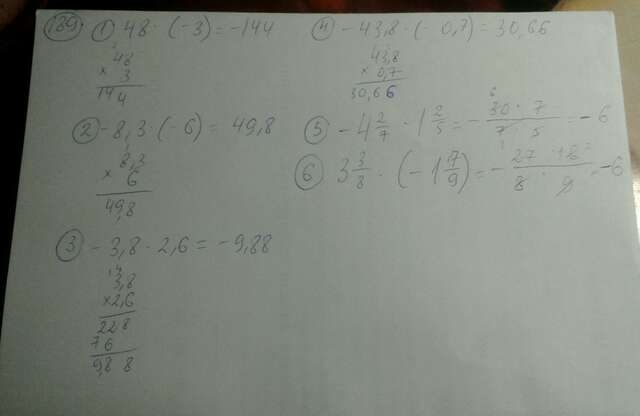 189 ① 48 · (-3) = -144
48
× 3
144
② -8,3 · (-6) = 49,8
8,3
× 6
49,8
③ -3,8 · 2,6 = -9,88
3,8
× 2,6
228
76
9,88
④ -43,8 · (-0,7) = 30,66
43,8
× 0,7
30,66
⑤ -4 2/7 · 1 2/5 = - 30 · 7 / 7 · 5 = -6
⑥ 3 3/8 · (-1 7/9) = - 27 · 16 / 8 · 9 = -6